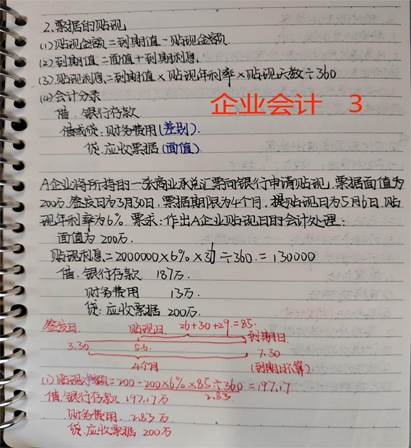 2.票据的贴现
(1)贴现金额=到期值-贴现金额
(2)到期值=面值+到期利息.
(3)贴现利息=到期值×贴现年利率×贴现天数÷360
(4)会计分录
借:银行存款
企业会计 3
借或贷:财务费用(差别).
贷:应收票据(面值)
A企业将所持有的一张商业承兑汇票向银行申请贴现,票据面值为
200万.签发日为3月30日,票据期限为4个月,提贴现日为5月6日,贴
现年利率为6%.要求:作出A企业贴现日的会计处理:
面值为200万.
贴现利息=2000000×6%× ÷360=130000
借:银行存款 187万.
财务费用 13万.
贷:应收票据 200万.
签发日 贴现日 26+30+29=85. 到期日
3.30 5.6 7.30
4个月 (到期日不算)
(1)贴现 =200-200×6%×85÷360=197.17
2.83
借:银行存款 197.17万
财务费用 2.83万
贷:应收票据 200万